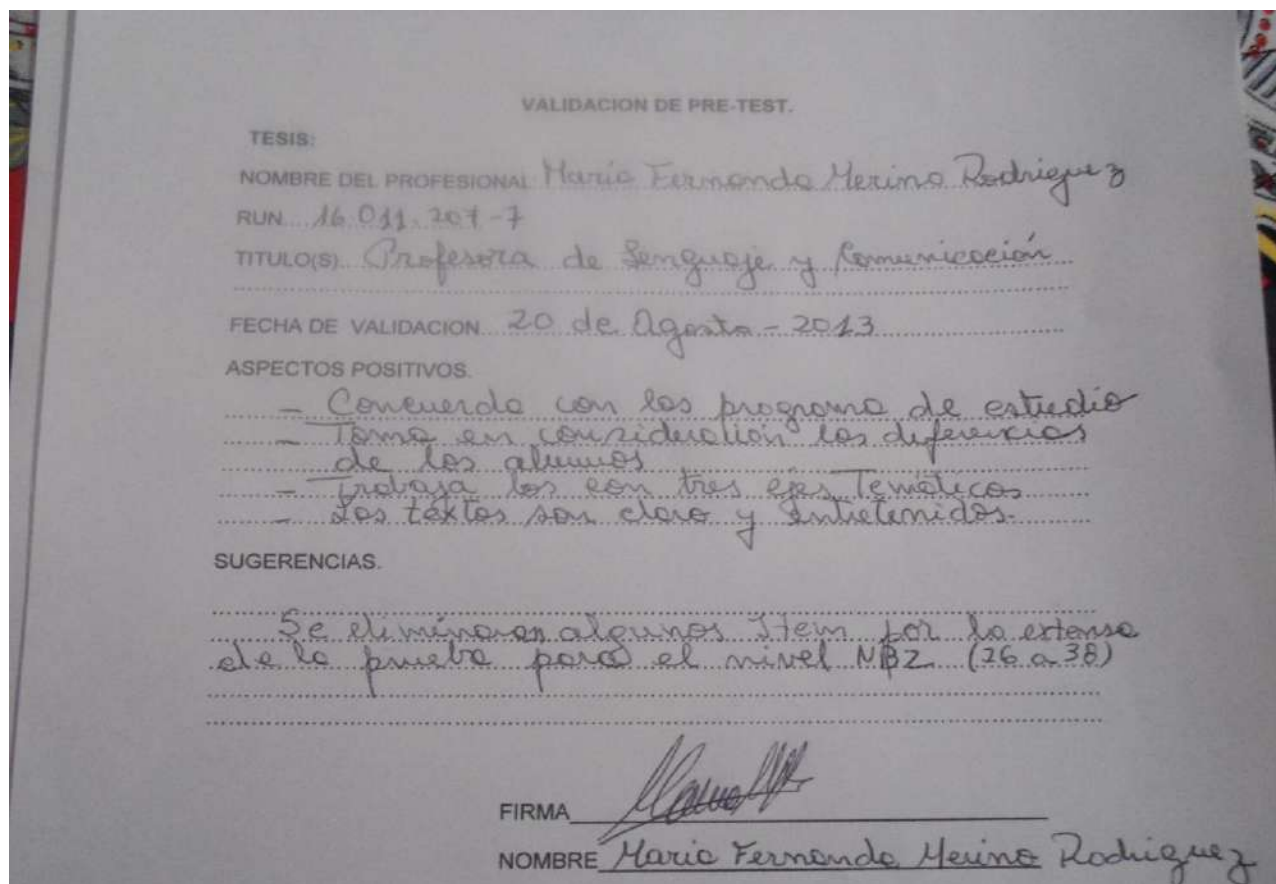 VALIDACION DE PRE-TEST.
TESIS:
NOMBRE DEL PROFESIONAL Maria Fernanda Merino Rodriguez
RUN 16.011.207-7
TITULO(S) Profesora de Lenguaje y Comunicación
FECHA DE VALIDACION 20 de Agosto - 2013
ASPECTOS POSITIVOS.
- Concuerda con los programa de estudio
- Toma en consideration las diferencias
de los alumnos
- Trabaja los con tres ejes Temáticos
- Los textos son claro y entretenidos.
SUGERENCIAS.
Se eliminaron algunos Item por lo extenso
de la prueba para el nivel NB2 (26 a 38)
FIRMA
NOMBRE Maria Fernanda Merino Rodriguez